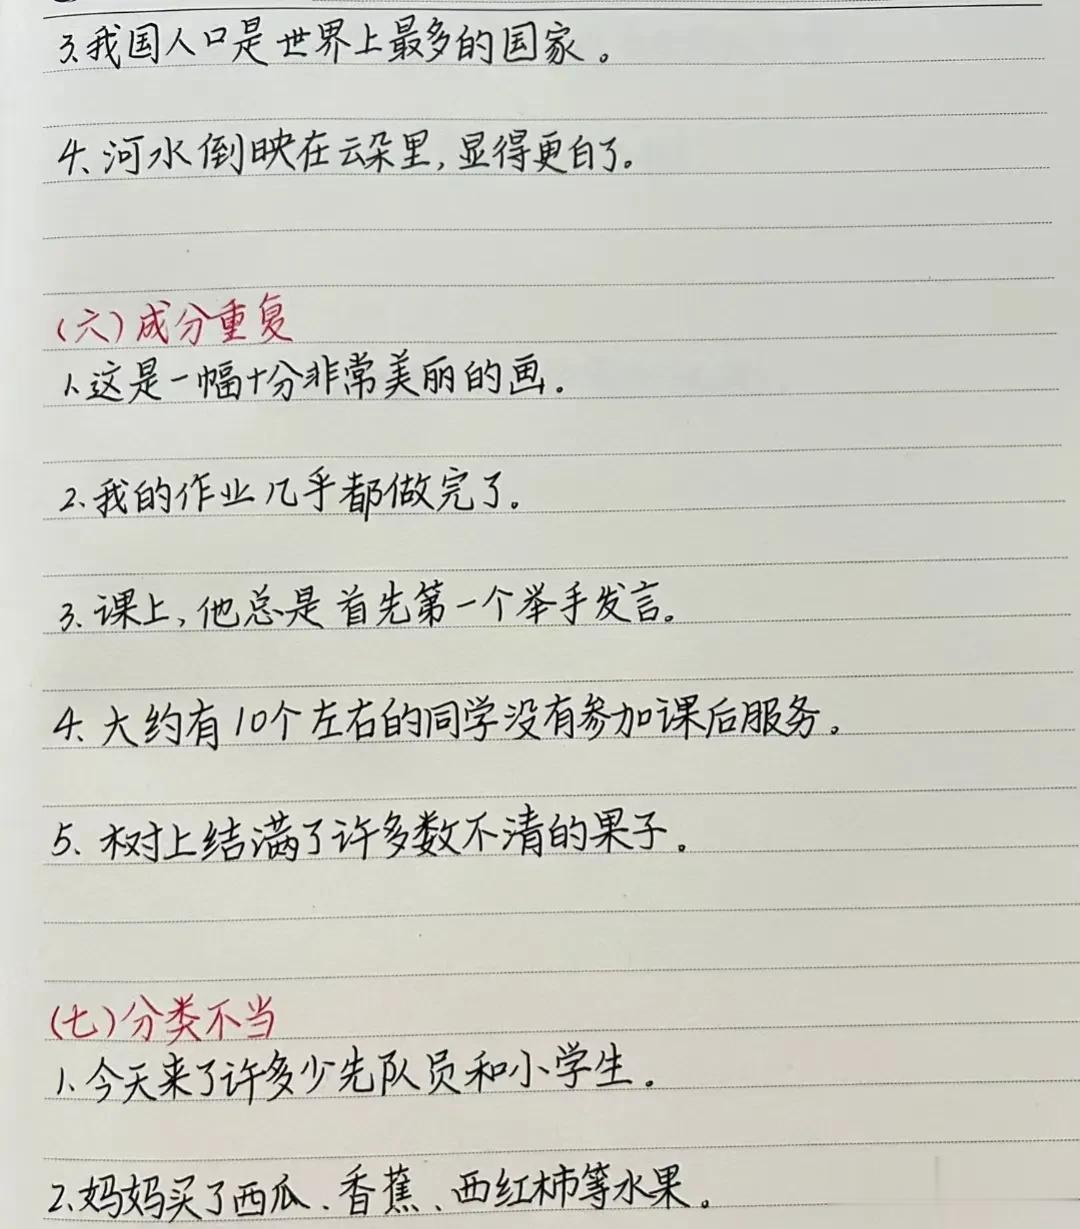 3.我国人口是世界上最多的国家。
4、河水倒映在云朵里,显得更白了。
(六)成分重复
1.这是一幅十分非常美丽的画.
2.我的作业几乎都做完了。
3.课上,他总是首先第一个举手发言。
4.大约有10个左右的同学没有参加课后服务。
5、树上结满了许多数不清的果子。
(七)分类不当
1、今天来了许多少先队员和小学生。
2、妈妈买了西瓜、香蕉、西红柿等水果。